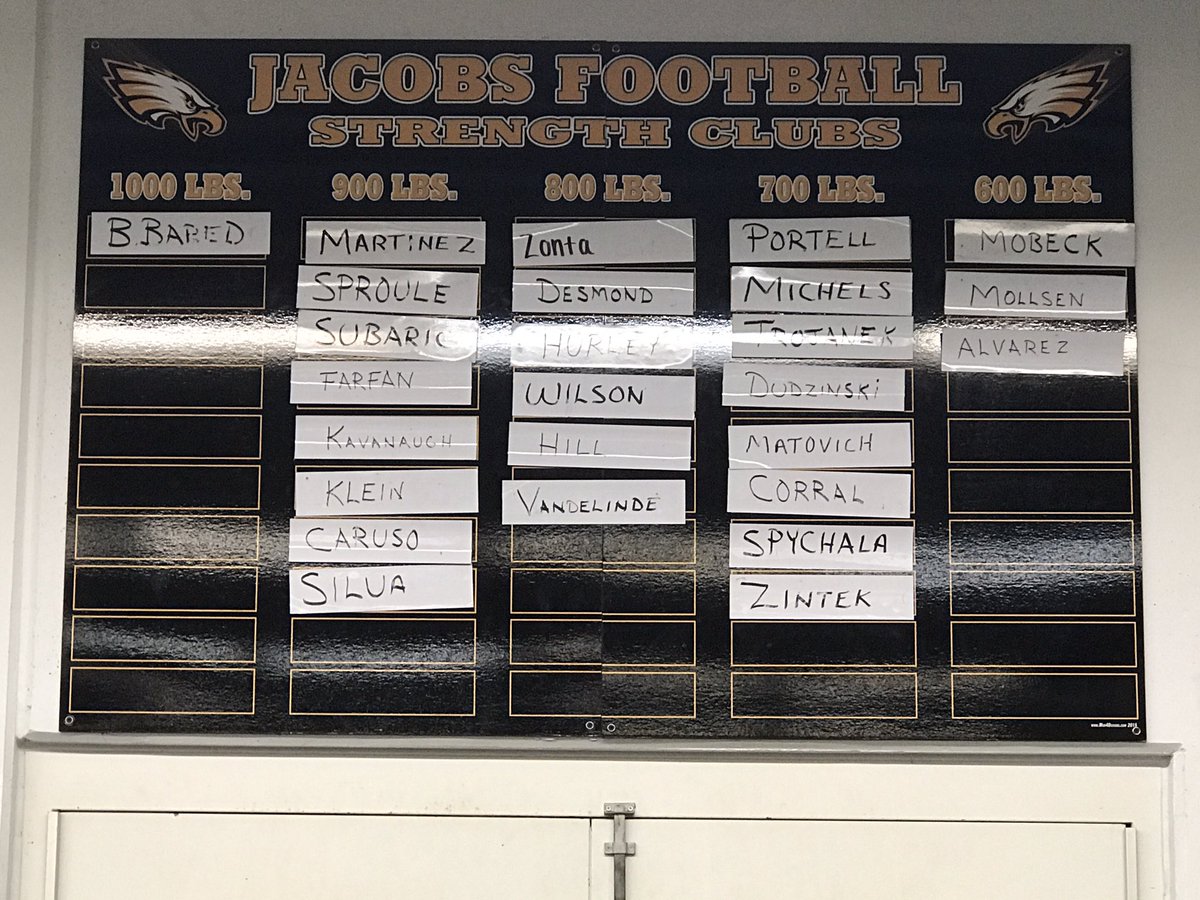 JACOBS FOOTBALL
STRENGTH CLUBS
1000 LBS.
B. BARED
900 LBS.
MARTINEZ
SPROULE
SUBARIC
FARFAN
KAVANAUGH
KLEIN
CARUSO
SILVA
800 LBS.
Zonta
DESMOND
HURLEY
WILSON
HILL
VANDELINDE
700 LBS.
PORTELL
MICHELS
TROJANEK
DUDZINSKI
MATOVICH
CORRAL
SPYCHALA
ZINTEK
600 LBS.
MOBECK
MOLLSEN
ALVAREZ